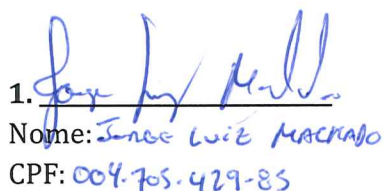 1. Jorge Luiz Machado
Nome: JORGE LUIZ MACHADO
CPF: 004.705.429-85